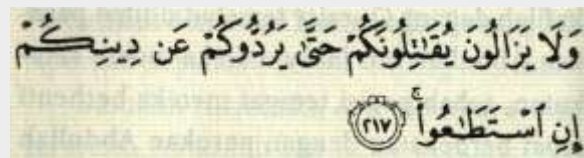 وَلَا يَزَالُونَ يُقَٰتِلُونَكُمْ حَتَّىٰ يَرُدُّوكُمْ عَن دِينِكُمْ
إِنِ ٱسْتَطَٰعُوا۟ ۚ ﴿٢١٧﴾